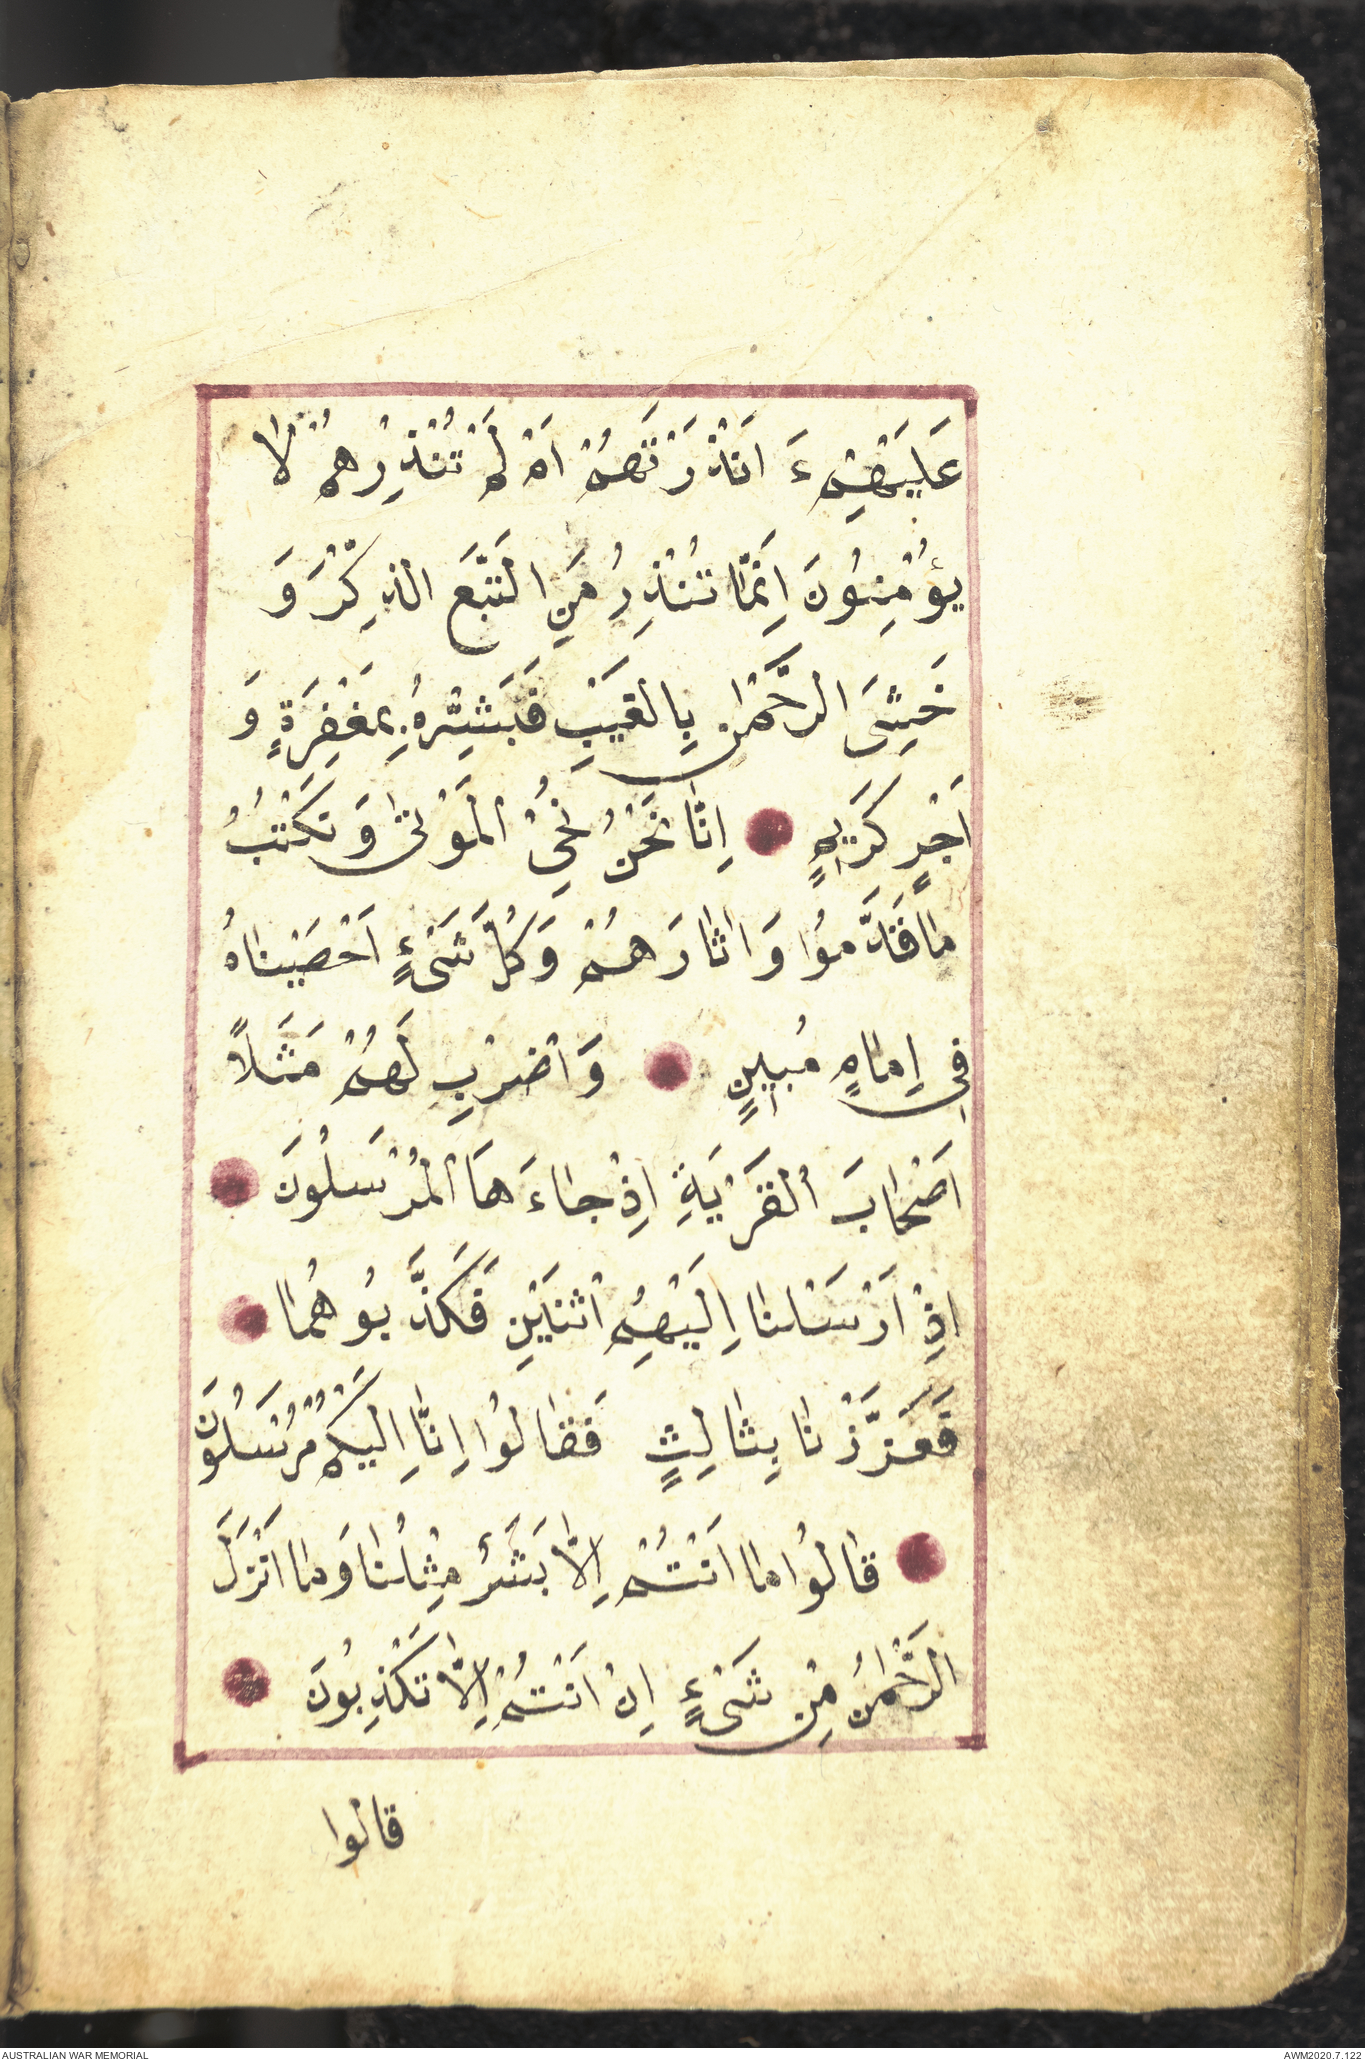 عَلَيْهِمْ ءَ اَنْذَرْتَهُمْ اَمْ لَمْ تُنْذِرْهُمْ لَا
يُؤْمِنُونَ اِنَّمَا تُنْذِرُ مَنِ اتَّبَعَ الذِّكْرَ وَ
خَشِىَ الرَّحْمٰنَ بِالْغَيْبِ فَبَشِّرْهُ بِمَغْفِرَةٍ وَ
اَجْرٍ كَرِيمٍ اِنَّا نَحْنُ نُحْىِ الْمَوْتٰى وَ نَكْتُبُ
مَا قَدَّمُوا وَ اٰثَارَهُمْ وَكُلَّ شَىْءٍ اَحْصَيْنَاهُ
فِى اِمَامٍ مُبِينٍ وَ اضْرِبْ لَهُمْ مَثَلًا
اَصْحَابَ الْقَرْيَةِ اِذْ جَاءَهَا الْمُرْسَلُونَ
اِذْ اَرْسَلْنَا اِلَيْهِمُ اثْنَيْنِ فَكَذَّبُوهُمَا
فَعَزَّزْنَا بِثَالِثٍ فَقَالُوا اِنَّا اِلَيْكُمْ مُرْسَلُونَ
قَالُوا مَا اَنْتُمْ اِلَّا بَشَرٌ مِثْلُنَا وَمَا اَنْزَلَ
الرَّحْمٰنُ مِنْ شَىْءٍ اِنْ اَنْتُمْ اِلَّا تَكْذِبُونَ
قالوا
AUSTRALIAN WAR MEMORIAL
AWM2020.7.122